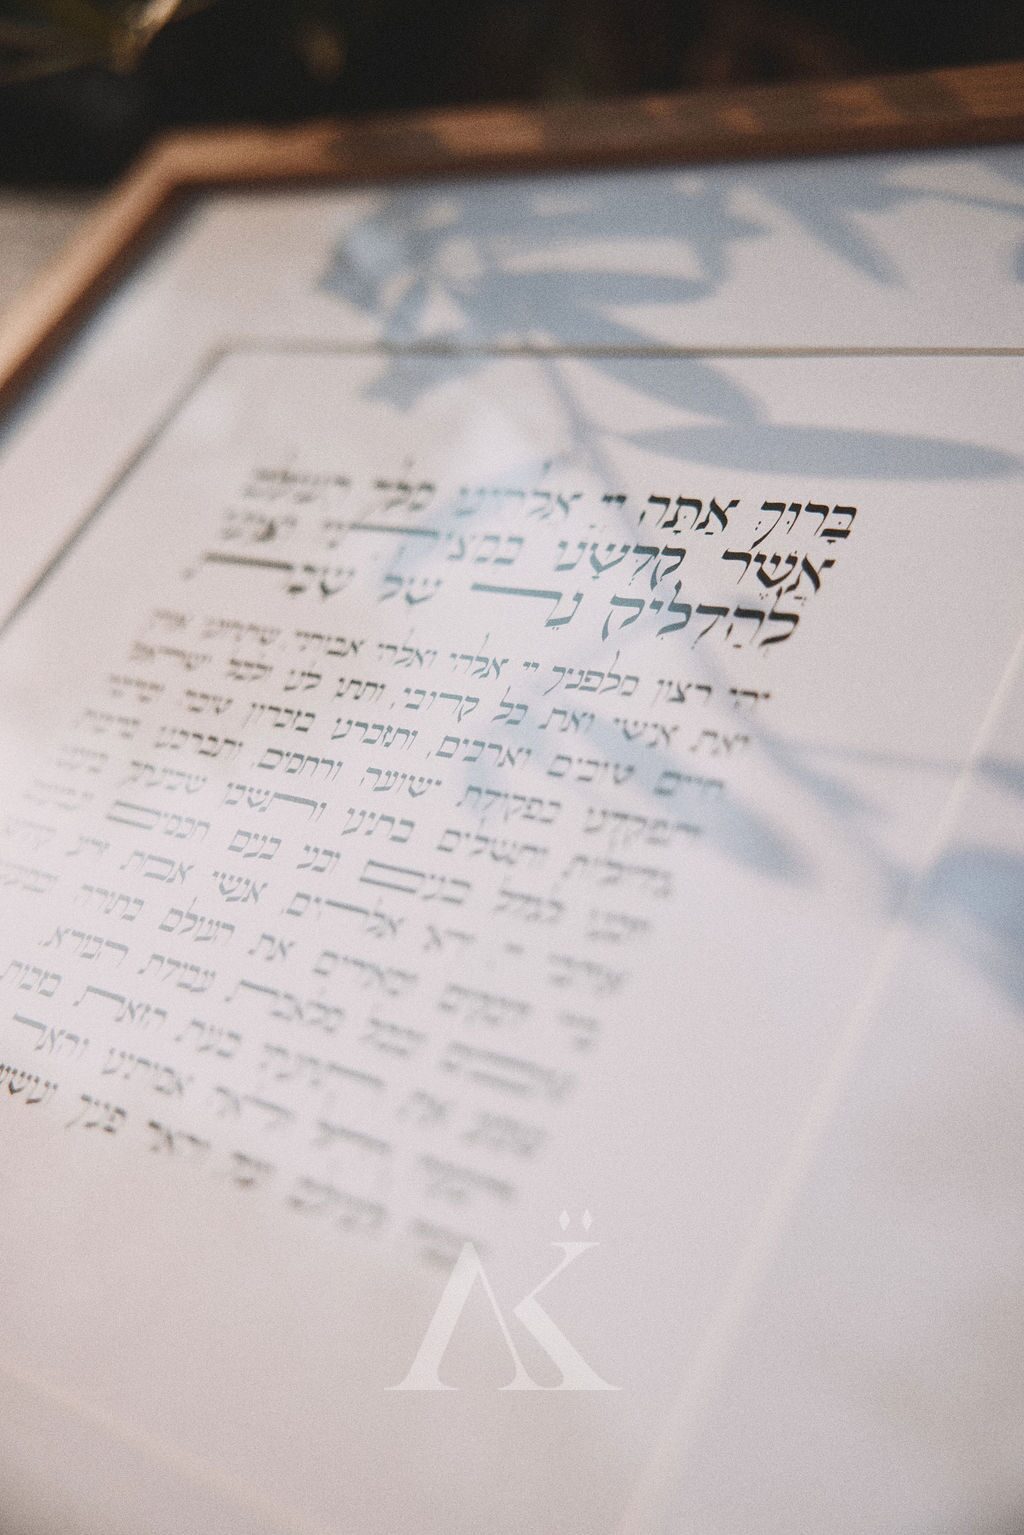 בָּרוּךְ אַתָּה יְיָ אלהינו מלך העולם
אֲשֶׁר קִדְּשָׁנוּ במצותיו וציונו
לְהַדְלִיק נֵר של שבת
יהי רצון מלפניך יי אלהי ואלהי אבותי, שתחונן אותי
ואת אישי ואת כל קרובי, ותתן לנו ולכל ישראל
חיים טובים וארכים, ותזכרנו בזכרון טובה וברכה
ותפקדנו בפקודת ישועה ורחמים, ותברכנו ברכות
גדולות ותשלים בתינו ותשכן שכינתך בינינו
וזכנו לגדל בנים ובני בנים חכמים
אוהבי יי יראי אלהים, אנשי אמת זרע קודש
ומאירים את העולם בתורה
ובכל מלאכת עבודת הבורא.
את תחינתי בעת הזאת בזכות
ורחל ולאה אמותינו והאר
לעולם ועד והאר פניך ונושעה
AK